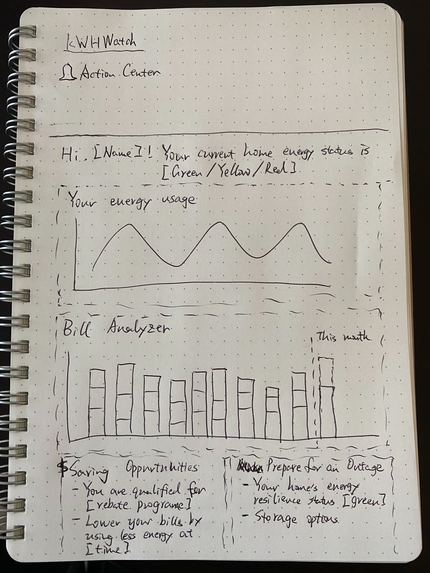 kWHWatch
Action Center
Hi, [Name]! Your current home energy status is
[Green/Yellow/Red]
Your energy usage
Bill Analyzer
This month
$ Saving Opportunities
- You are qualified for
[rebate programs]
- Lower your bills by
using less energy at
[time]
Prepare for an Outage
- Your home's energy
resilience status [green]
- Storage options